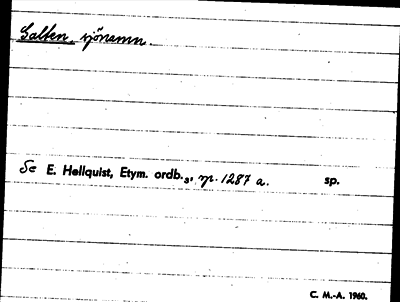 Salten, sjönamn.
Se E. Hellquist, Etym. ordb.₃, sp. 1287 a. sp.
C. M.-A. 1960.